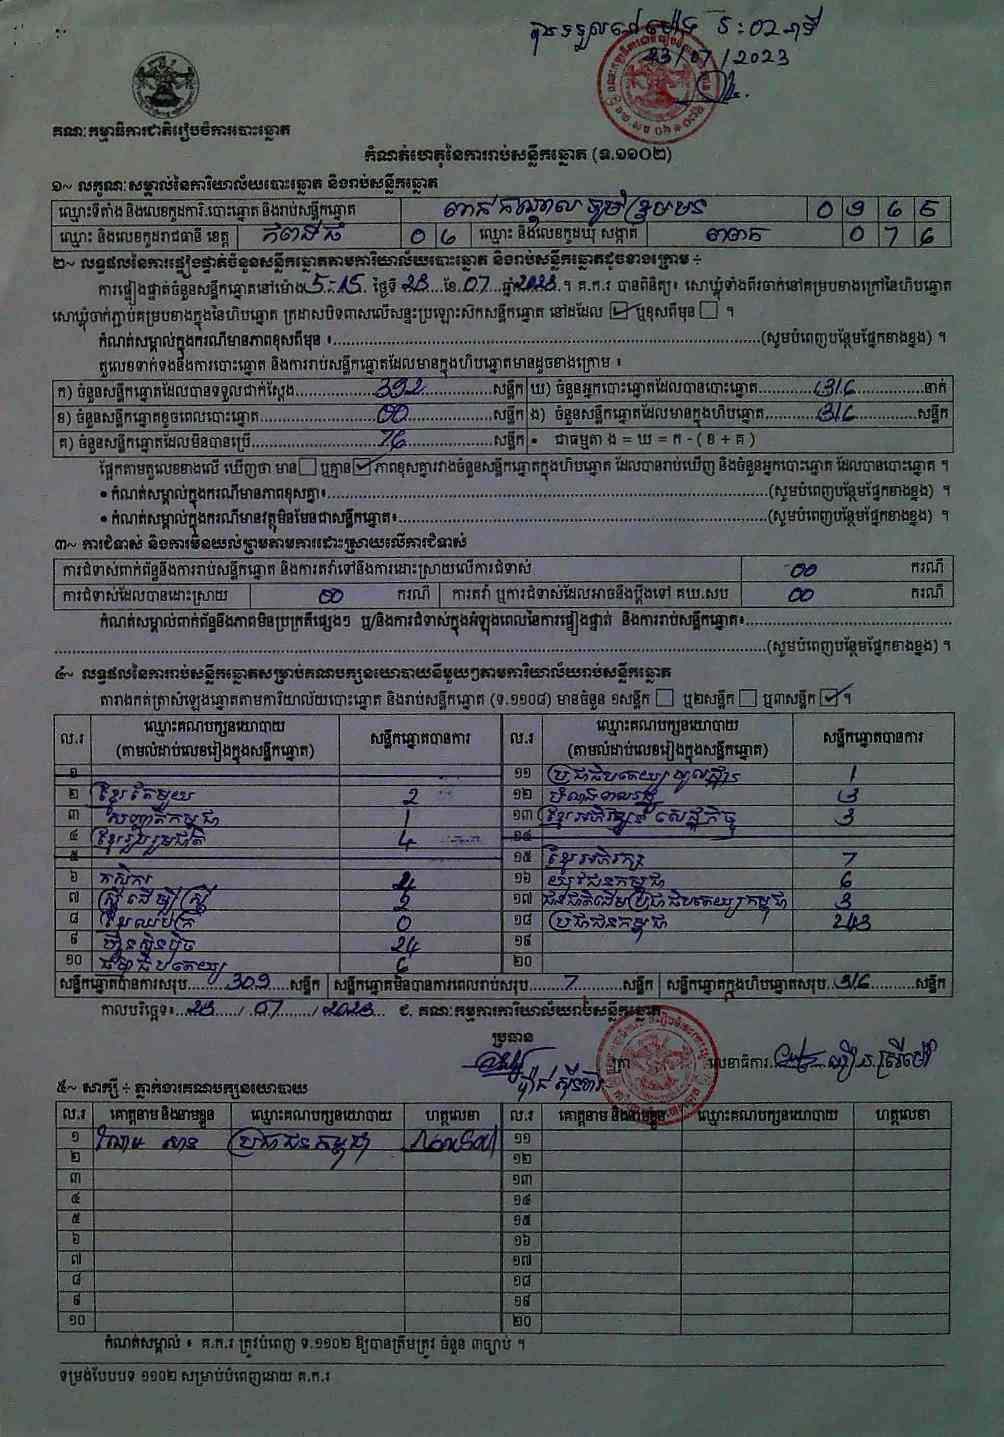 23/07/2023
គណៈកម្មាធិការជាតិរៀបចំការបោះឆ្នោត
កំណត់ហេតុនៃការរាប់សន្លឹកឆ្នោត (ទ.១១០២)
១~ លក្ខណៈសម្គាល់នៃការិយាល័យបោះឆ្នោត និងរាប់សន្លឹកឆ្នោត
ឈ្មោះទីតាំង និងលេខកូដការិ.បោះឆ្នោត និងរាប់សន្លឹកឆ្នោត
ឈ្មោះ និងលេខកូដរាជធានី ខេត្ត កំពង់ធំ 0 6 ឈ្មោះ និងលេខកូដឃុំ សង្កាត់ 0 7 6
២~ លទ្ធផលនៃការផ្ទៀងផ្ទាត់ចំនួនសន្លឹកឆ្នោតតាមការិយាល័យបោះឆ្នោត និងរាប់សន្លឹកឆ្នោតដូចខាងក្រោម ÷
ការផ្ទៀងផ្ទាត់ចំនួនសន្លឹកឆ្នោតនៅម៉ោង 5-15 ថ្ងៃទី 23 ខែ 07 ឆ្នាំ 2023 ។ គ.ក.រ បានពិនិត្យ៖ សោឃ្លុំទាំងពីរចាក់នៅគម្របខាងក្រៅនៃហិបឆ្នោត
សោឃ្លុំចាក់ភ្ជាប់គម្របខាងក្នុងនៃហិបឆ្នោត ក្រដាសបិទពាសលើសន្ទះប្រឡោះស៊កសន្លឹកឆ្នោត នៅដដែល ☑ ឬខុសពីមុន ☐ ។
កំណត់សម្គាល់ក្នុងករណីមានភាពខុសពីមុន ៖ (សូមបំពេញបន្ថែមផ្នែកខាងខ្នង) ។
តួលេខទាក់ទងនឹងការបោះឆ្នោត និងការរាប់សន្លឹកឆ្នោតដែលមានក្នុងហិបឆ្នោតមានដូចខាងក្រោម ៖
ក) ចំនួនសន្លឹកឆ្នោតដែលបានទទួលជាក់ស្តែង 392 សន្លឹក ឃ) ចំនួនអ្នកបោះឆ្នោតដែលបានបោះឆ្នោត 316 នាក់
ខ) ចំនួនសន្លឹកឆ្នោតខូចពេលបោះឆ្នោត 00 សន្លឹក ង) ចំនួនសន្លឹកឆ្នោតដែលមានក្នុងហិបឆ្នោត 316 សន្លឹក
គ) ចំនួនសន្លឹកឆ្នោតដែលមិនបានប្រើ 76 សន្លឹក • ជាធម្មតា ង = ឃ = ក - ( ខ + គ )
ផ្អែកតាមតួលេខខាងលើ ឃើញថា មាន ☐ ឬគ្មាន ☑ ភាពខុសគ្នារវាងចំនួនសន្លឹកឆ្នោតក្នុងហិបឆ្នោត ដែលបានរាប់ឃើញ និងចំនួនអ្នកបោះឆ្នោត ដែលបានបោះឆ្នោត ។
• កំណត់សម្គាល់ក្នុងករណីមានភាពខុសគ្នា៖ (សូមបំពេញបន្ថែមផ្នែកខាងខ្នង) ។
• កំណត់សម្គាល់ក្នុងករណីមានវត្ថុមិនមែនជាសន្លឹកឆ្នោត៖ (សូមបំពេញបន្ថែមផ្នែកខាងខ្នង) ។
៣~ ការជំទាស់ និងការមិនយល់ព្រមតាមការដោះស្រាយលើការជំទាស់
ការជំទាស់ពាក់ព័ន្ធនឹងការរាប់សន្លឹកឆ្នោត និងការតវ៉ាទៅនឹងការដោះស្រាយលើការជំទាស់ 00 ករណី
ការជំទាស់ដែលបានដោះស្រាយ 00 ករណី ការតវ៉ា ឬការជំទាស់ដែលអាចនឹងប្តឹងទៅ គឃ.សប 00 ករណី
កំណត់សម្គាល់ពាក់ព័ន្ធនឹងភាពមិនប្រក្រតីផ្សេងៗ ឬ/និងការជំទាស់ក្នុងអំឡុងពេលនៃការផ្ទៀងផ្ទាត់ និងការរាប់សន្លឹកឆ្នោត៖
(សូមបំពេញបន្ថែមផ្នែកខាងខ្នង) ។
៤~ លទ្ធផលនៃការរាប់សន្លឹកឆ្នោតសម្រាប់គណបក្សនយោបាយនីមួយៗតាមការិយាល័យរាប់សន្លឹកឆ្នោត
តារាងកត់ត្រាសំឡេងឆ្នោតតាមការិយាល័យបោះឆ្នោត និងរាប់សន្លឹកឆ្នោត (ទ.១១០៨) មានចំនួន ១សន្លឹក ☐ ឬ២សន្លឹក ☐ ឬ៣សន្លឹក ☑ ។
ល.រ ឈ្មោះគណបក្សនយោបាយ (តាមលំដាប់លេខរៀងក្នុងសន្លឹកឆ្នោត) សន្លឹកឆ្នោតបានការ ល.រ ឈ្មោះគណបក្សនយោបាយ (តាមលំដាប់លេខរៀងក្នុងសន្លឹកឆ្នោត) សន្លឹកឆ្នោតបានការ
១ ១១ ប្រជាធិបតេយ្យមូលដ្ឋាន 1
២ ខ្មែរតែមួយ 2 ១២ បំណងពលរដ្ឋ 3
៣ សញ្ជាតិកម្ពុជា 1 ១៣ ខ្មែរអភិវឌ្ឍន៍សេដ្ឋកិច្ច 3
៤ ខ្មែររួបរួមជាតិ 4 ១៤
៥ ១៥ ខ្មែរអភិរក្ស 7
៦ កសិករ ១៦ យុវជនកម្ពុជា 6
៧ ស្រ្តីដើម្បីស្រ្តី 2 ១៧ ជនជាតិដើមប្រជាធិបតេយ្យកម្ពុជា 3
៨ ខ្មែរឈប់ក្រ 0 ១៨ ប្រជាជនកម្ពុជា 243
៩ ហ្វ៊ុនស៊ិនប៉ិច 24 ១៩
១០ ធម្មាធិបតេយ្យ 6 ២០
សន្លឹកឆ្នោតបានការសរុប 309 សន្លឹក សន្លឹកឆ្នោតមិនបានការពេលរាប់សរុប 7 សន្លឹក សន្លឹកឆ្នោតក្នុងហិបឆ្នោតសរុប 316 សន្លឹក
កាលបរិច្ឆេទ៖ 23 / 07 / 2023 ជ. គណៈកម្មការការិយាល័យរាប់សន្លឹកឆ្នោត
ប្រធាន
លេខាធិការ
៥~ សាក្សី ÷ ភ្នាក់ងារគណបក្សនយោបាយ
ល.រ គោត្តនាម និងនាមខ្លួន ឈ្មោះគណបក្សនយោបាយ ហត្ថលេខា ល.រ គោត្តនាម និងនាមខ្លួន ឈ្មោះគណបក្សនយោបាយ ហត្ថលេខា
១ ប្រជាជនកម្ពុជា ១១
២ ១២
៣ ១៣
៤ ១៤
៥ ១៥
៦ ១៦
៧ ១៧
៨ ១៨
៩ ១៩
១០ ២០
កំណត់សម្គាល់ ៖ គ.ក.រ ត្រូវបំពេញ ទ.១១០២ ឱ្យបានត្រឹមត្រូវ ចំនួន ៣ច្បាប់ ។
ទម្រង់បែបបទ ១១០២ សម្រាប់បំពេញដោយ គ.ក.រ